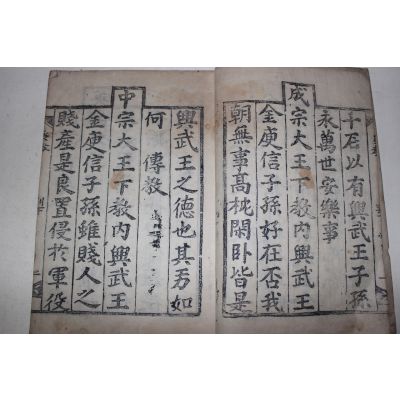 千石以有興武王子孫
永萬世安樂事
成宗大王下敎內興武王
金庾信子孫好在否我
朝無事高枕閑臥皆是
興武王之德也其功如
何 傳敎
中宗大王下敎內興武王
金庾信子孫雖賤人之
賤産是良置侵於軍役